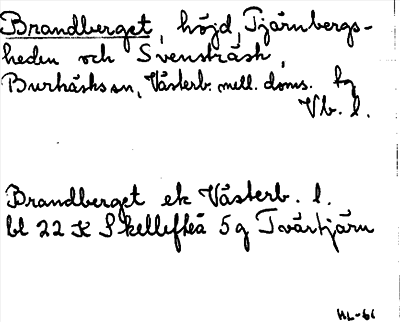 Brandberget, höjd, Tjärnbergs-
heden och Svensträsk,
Burträsks sn, Västerb. mell. doms. fg
Vb. l.
Brandberget ek Västerb. l.
bl 22 K Skellefteå 5g Tvärtjärn
HL-66